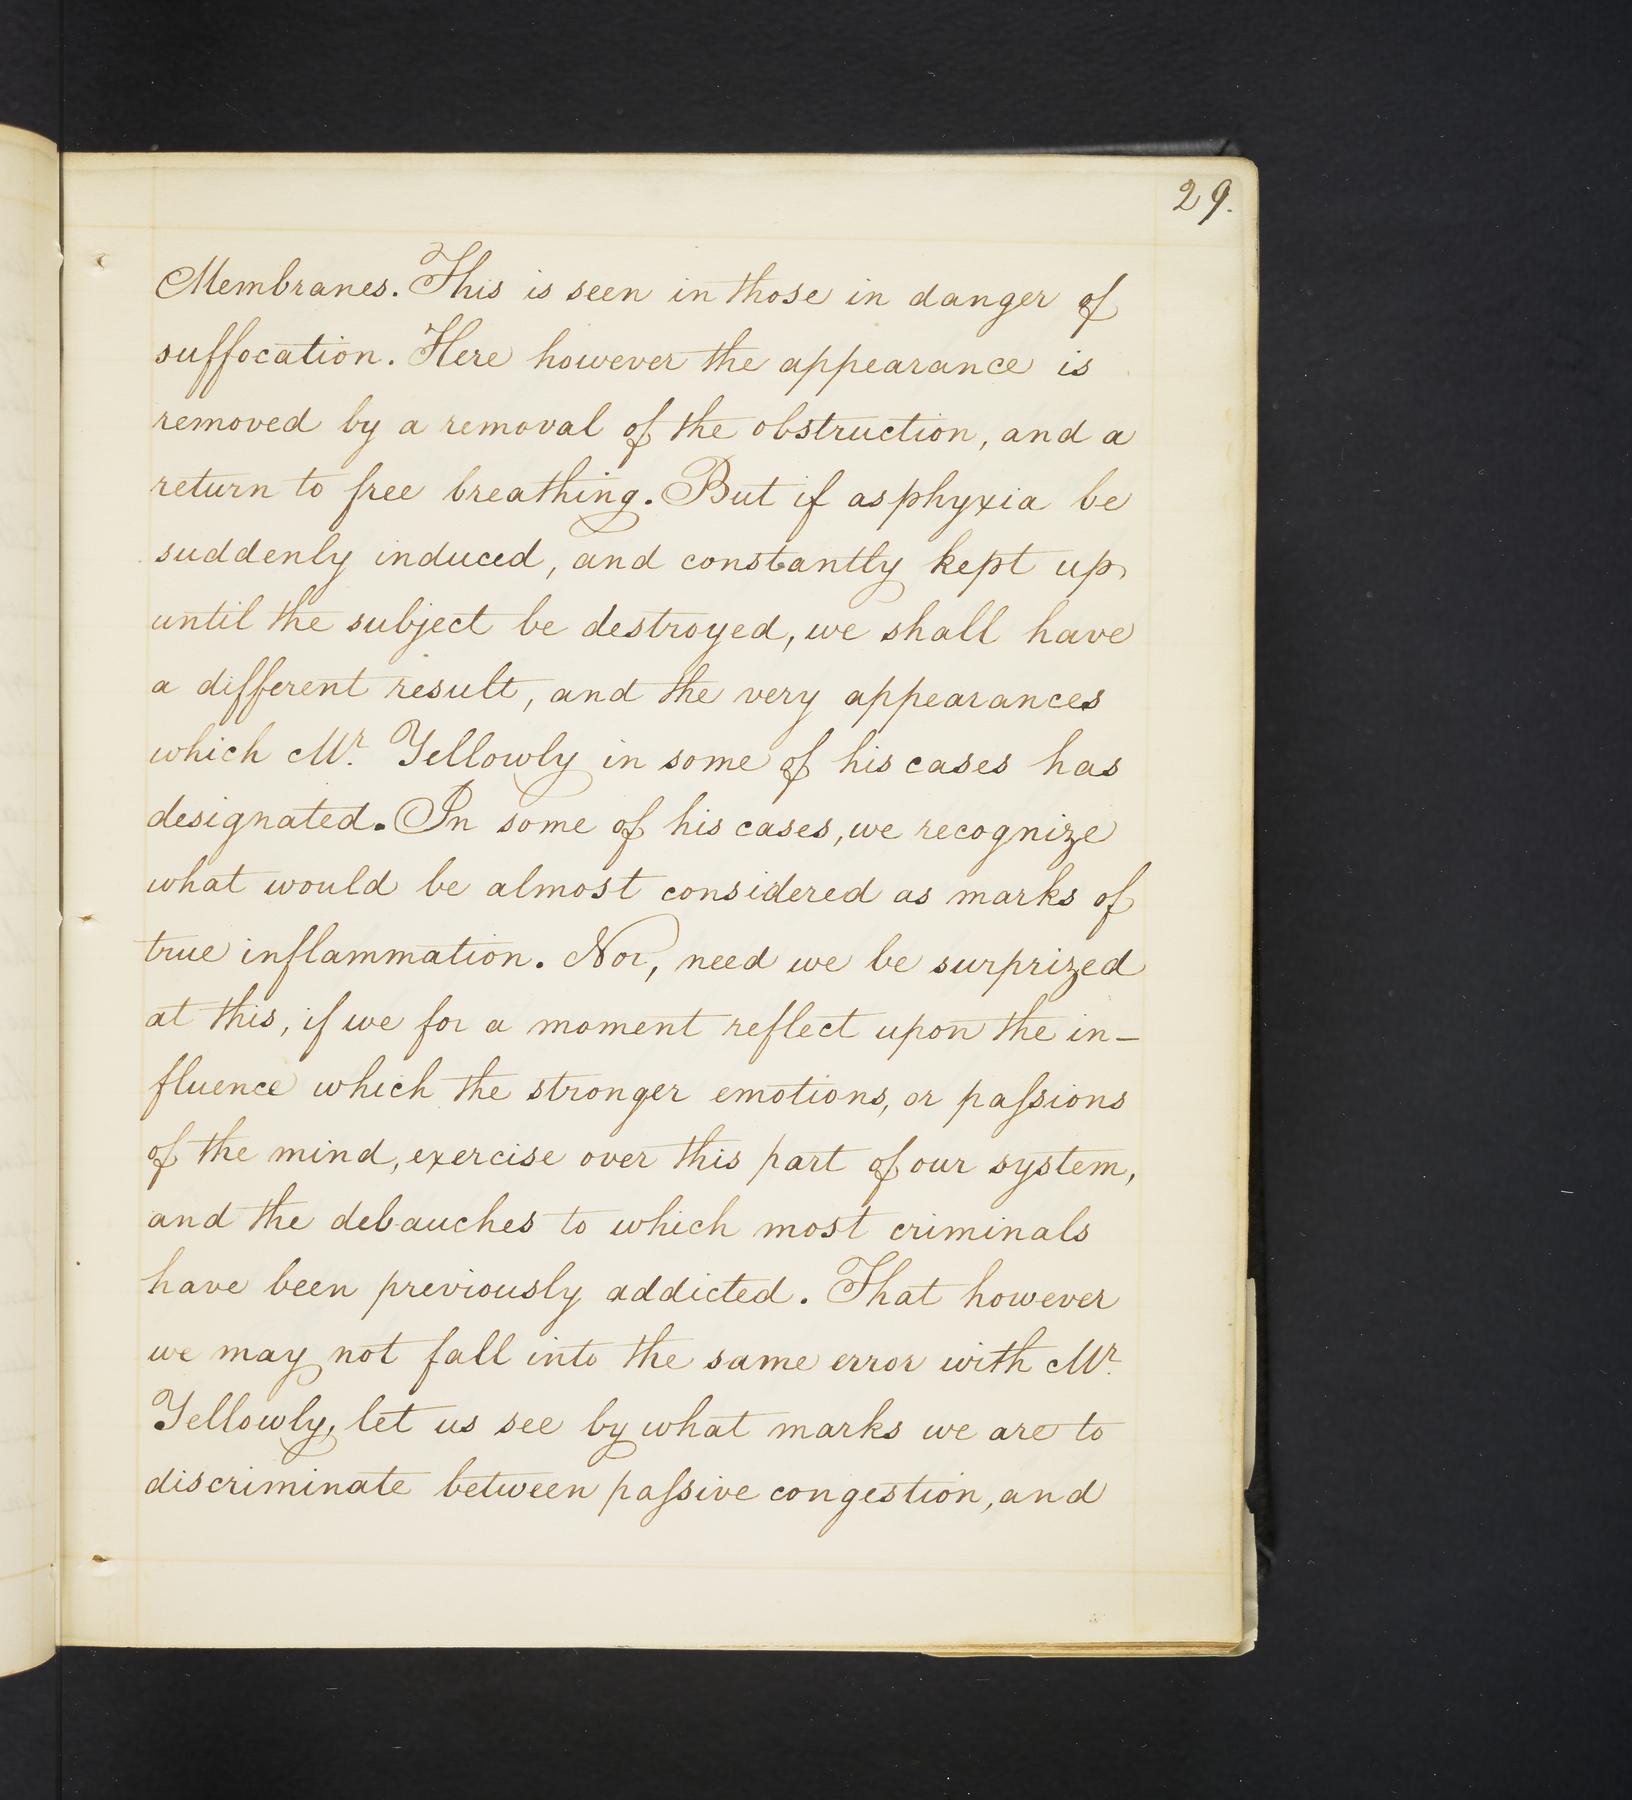 29.
Membranes. This is seen in those in danger of
suffocation. Here however the appearance is
removed by a removal of the obstruction, and a
return to free breathing. But if asphyxia be
suddenly induced, and constantly kept up
until the subject be destroyed, we shall have
a different result, and the very appearances
which Mr. Yellowly in some of his cases has
designated. In some of his cases, we recognize
what would be almost considered as marks of
true inflammation. Nor, need we be surprized
at this, if we for a moment reflect upon the in-
fluence which the stronger emotions, or paſsions
of the mind, exercise over this part of our system,
and the debauches to which most criminals
have been previously addicted. That however
we may not fall into the same error with Mr.
Yellowly, let us see by what marks we are to
discriminate between paſsive congestion, and